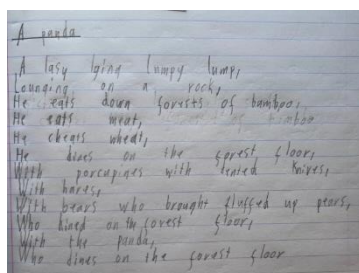 A panda
A lasy lging lumpy lump,
Lounging on a rock,
He eats down forests of bamboo,
He eats meat,
He cheats wheat,
He dines on the forest floor,
With porcupines with dented knives,
With hares,
With bears who brought fluffed up pears,
Who dined on the forest floor,
With the panda,
Who dines on the forest floor